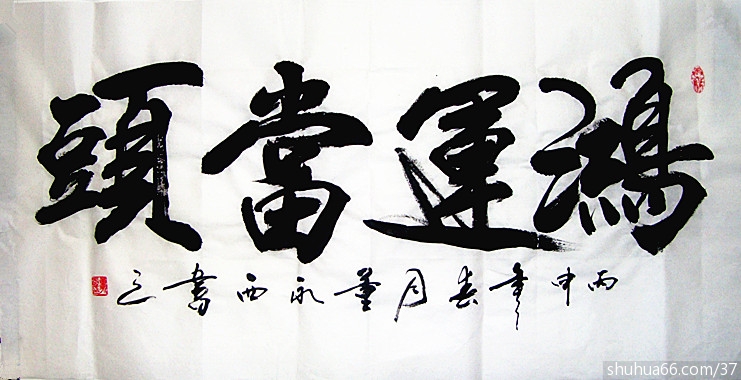 鴻運當頭
丙申年春月董永西書之
shuhua66.com/37